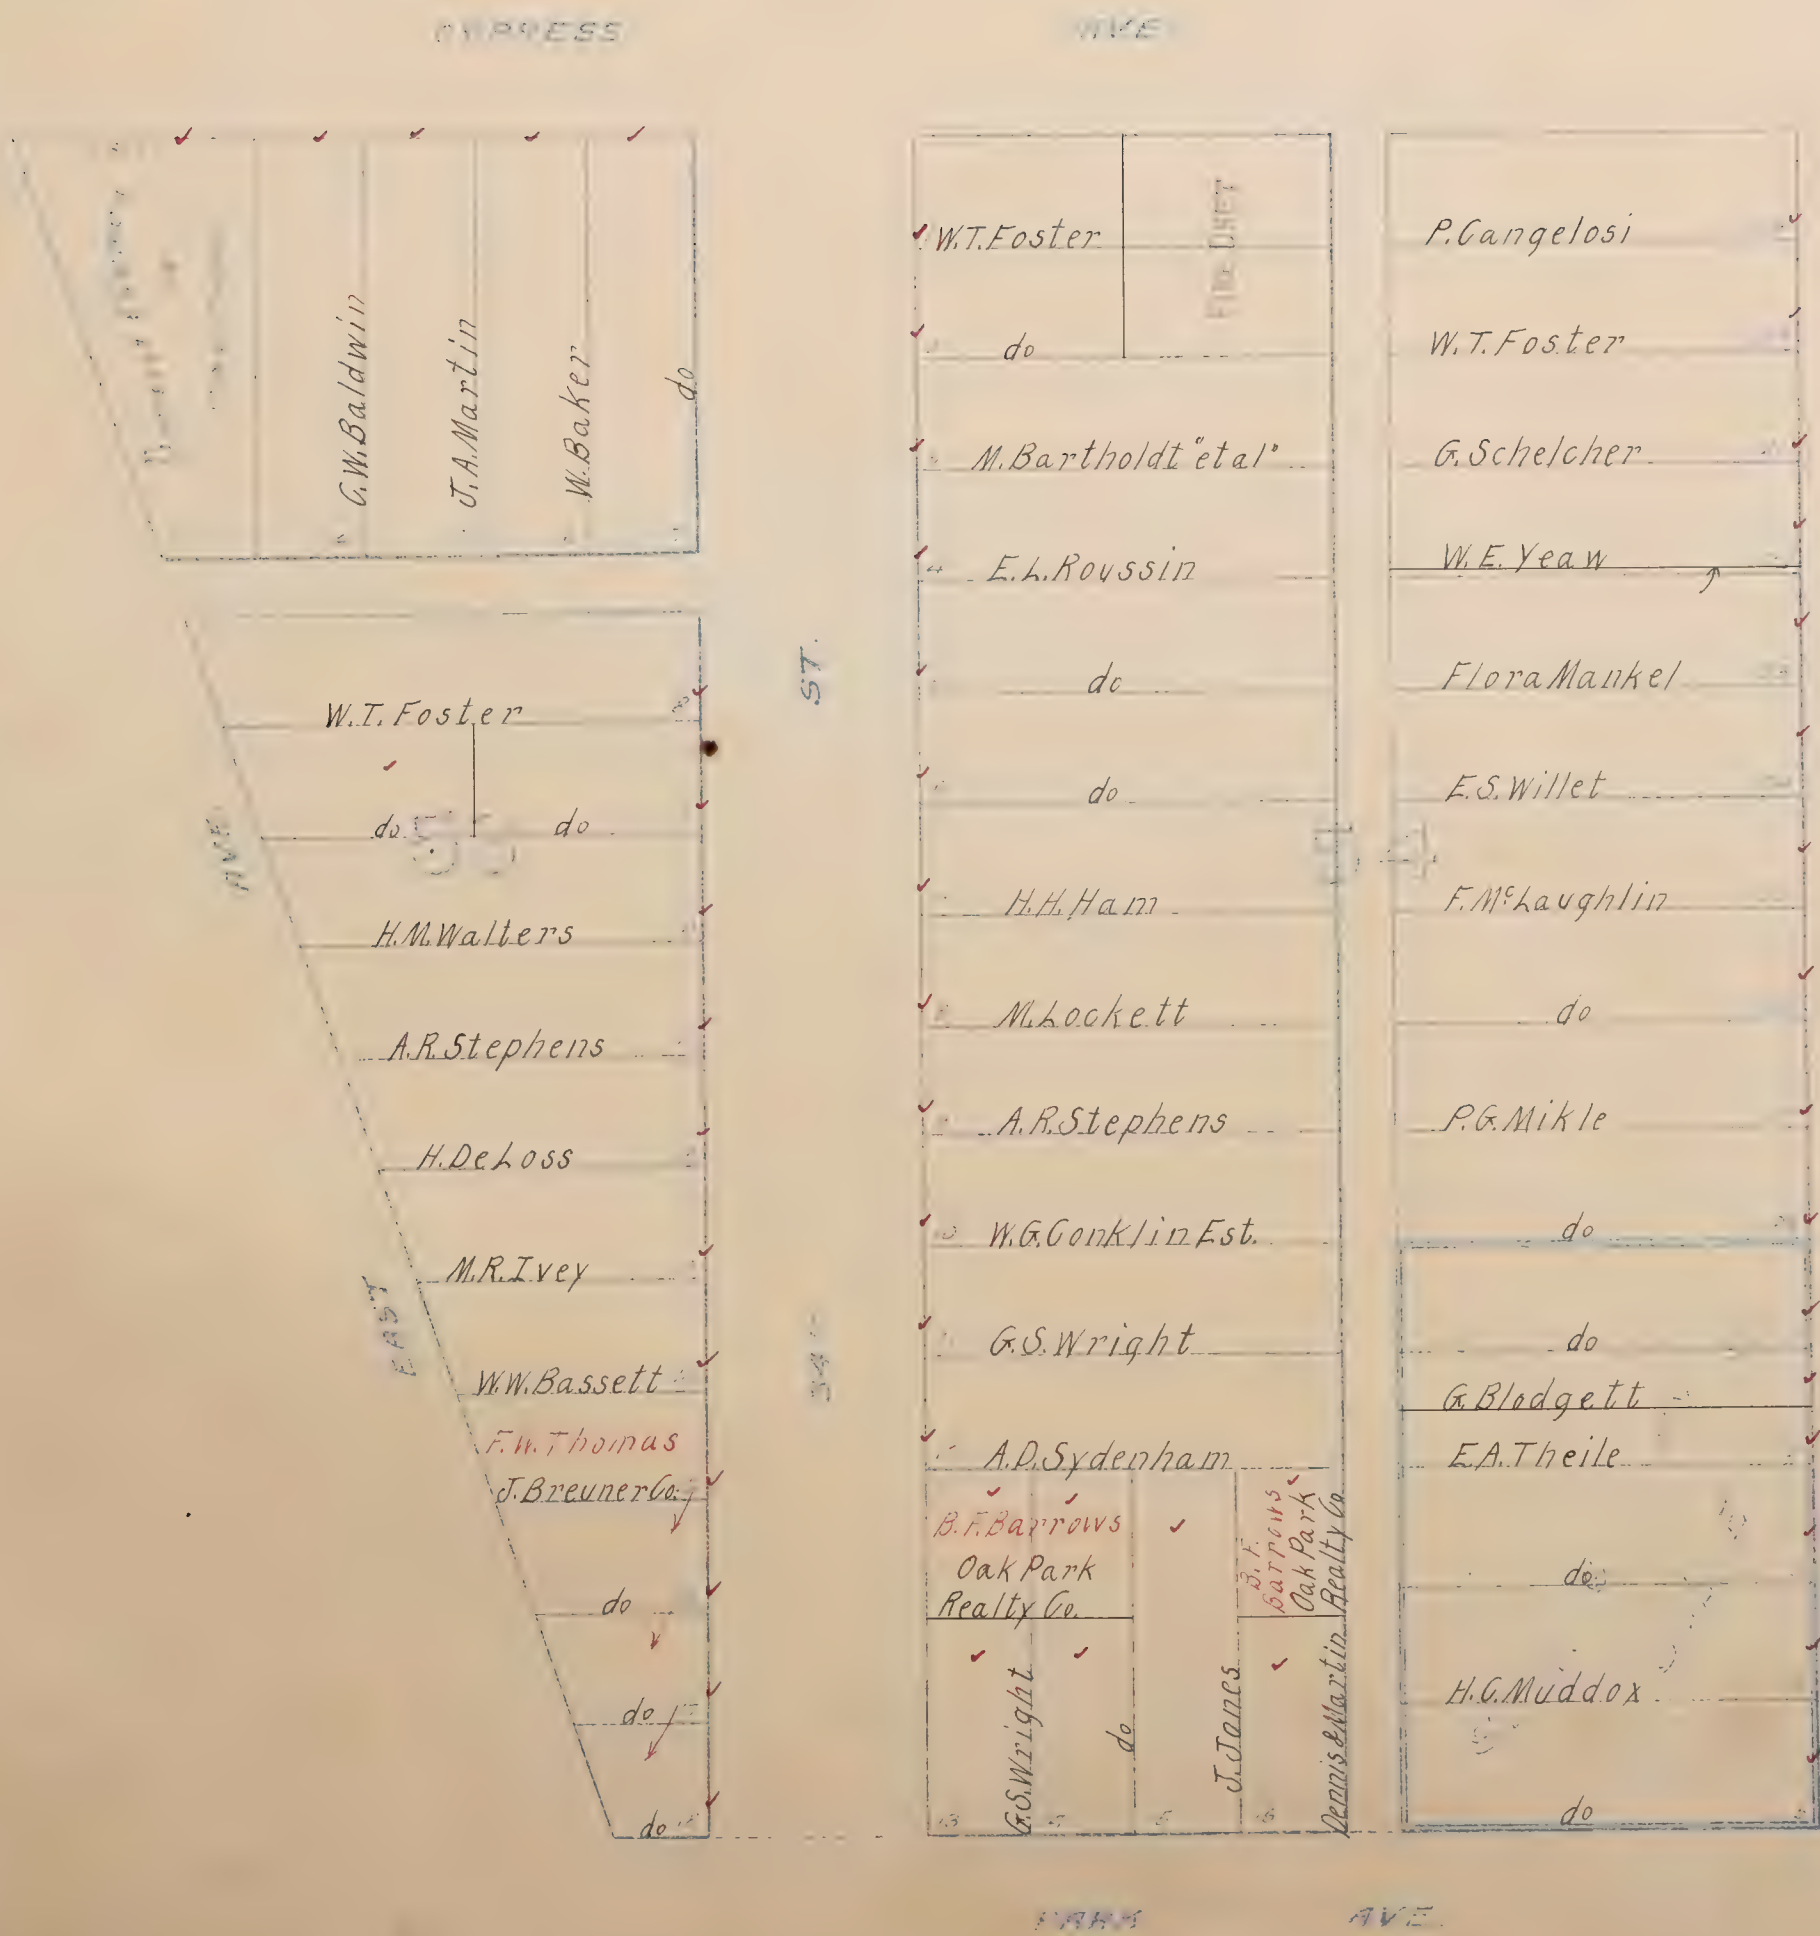 CYPRESS AVE
C.W.Baldwin
J.A.Martin
W.Baker
do
W.T.Foster
do do
55
H.M.Walters
A.R.Stephens
H.DeLoss
M.R.Ivey
W.W.Bassett
F.W.Thomas
J.Breuner Co.
do
do
do
EAST AVE
34 ST.
W.T.Foster
do
M.Bartholdt "etal"
4 E.L.Roussin
do
do
H.H.Ham
M.Lockett
A.R.Stephens
W.G.Conklin Est.
G.S.Wright
A.D.Sydenham
B.F.Barrows
Oak Park
Realty Co.
B.F.
Barrows
Oak Park
Realty Co.
G.S.Wright
do
J.Jones
Dennis & Martin
P.Cangelosi
W.T.Foster
G.Schelcher
W.E.Yeaw
Flora Mankel
E.S.Willet
F.McLaughlin
do
P.G.Mikle
do
do
G.Blodgett
E.A.Theile
do
H.C.Muddox
do
PARK AVE.